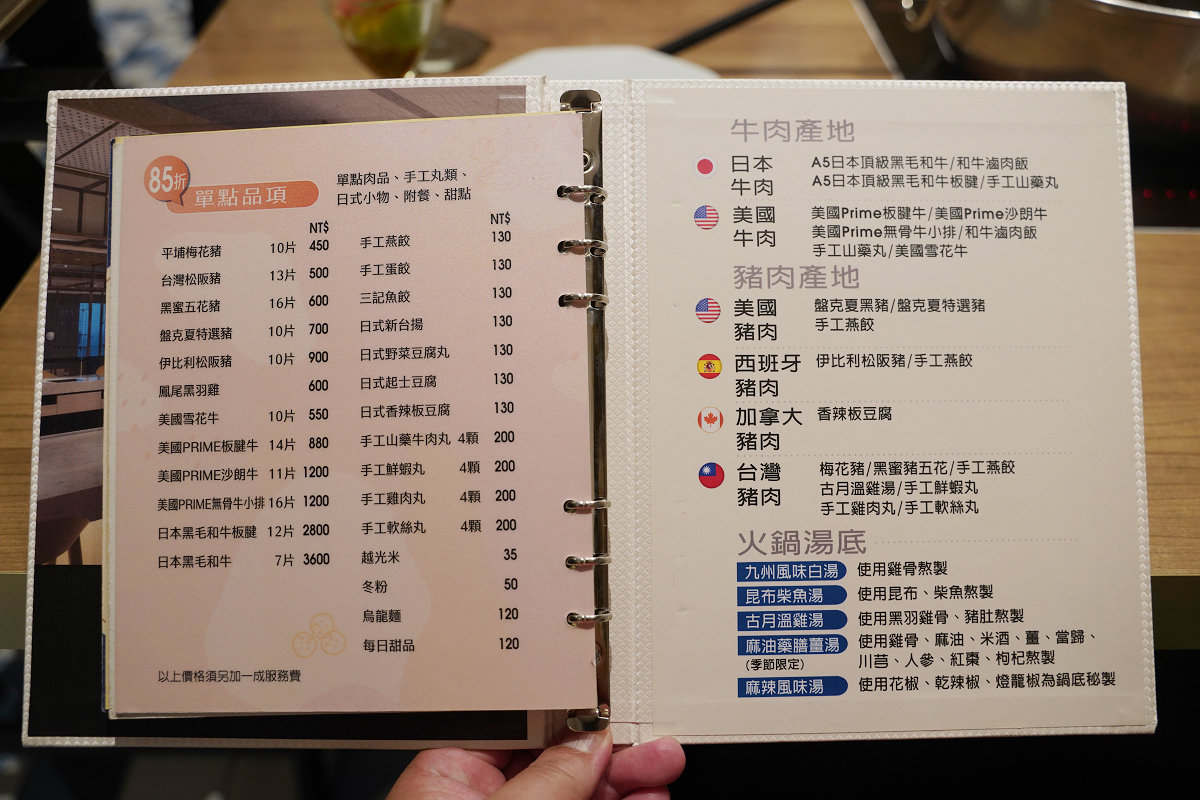 85折
單點品項
單點肉品、手工丸類、
日式小物、附餐、甜點
NT$
平埔梅花豬 10片 450
台灣松阪豬 13片 500
黑蜜五花豬 16片 600
盤克夏特選豬 10片 700
伊比利松阪豬 10片 900
鳳尾黑羽雞 600
美國雪花牛 10片 550
美國PRIME板腱牛 14片 880
美國PRIME沙朗牛 11片 1200
美國PRIME無骨牛小排 16片 1200
日本黑毛和牛板腱 12片 2800
日本黑毛和牛 7片 3600
NT$
手工燕餃 130
手工蛋餃 130
三記魚餃 130
日式新台揚 130
日式野菜豆腐丸 130
日式起士豆腐 130
日式香辣板豆腐 130
手工山藥牛肉丸 4顆 200
手工鮮蝦丸 4顆 200
手工雞肉丸 4顆 200
手工軟絲丸 4顆 200
越光米 35
冬粉 50
烏龍麵 120
每日甜品 120
以上價格須另加一成服務費
牛肉產地
日本
牛肉
A5日本頂級黑毛和牛/和牛滷肉飯
A5日本頂級黑毛和牛板腱/手工山藥丸
美國
牛肉
美國Prime板腱牛/美國Prime沙朗牛
美國Prime無骨牛小排/和牛滷肉飯
手工山藥丸/美國雪花牛
豬肉產地
美國
豬肉
盤克夏黑豬/盤克夏特選豬
手工燕餃
西班牙
豬肉
伊比利松阪豬/手工燕餃
加拿大
豬肉
香辣板豆腐
台灣
豬肉
梅花豬/黑蜜豬五花/手工燕餃
古月溫雞湯/手工鮮蝦丸
手工雞肉丸/手工軟絲丸
火鍋湯底
九州風味白湯 使用雞骨熬製
昆布柴魚湯 使用昆布、柴魚熬製
古月溫雞湯 使用黑羽雞骨、豬肚熬製
麻油藥膳薑湯 使用雞骨、麻油、米酒、薑、當歸、
(季節限定) 川芎、人參、紅棗、枸杞熬製
麻辣風味湯 使用花椒、乾辣椒、燈籠椒為鍋底秘製